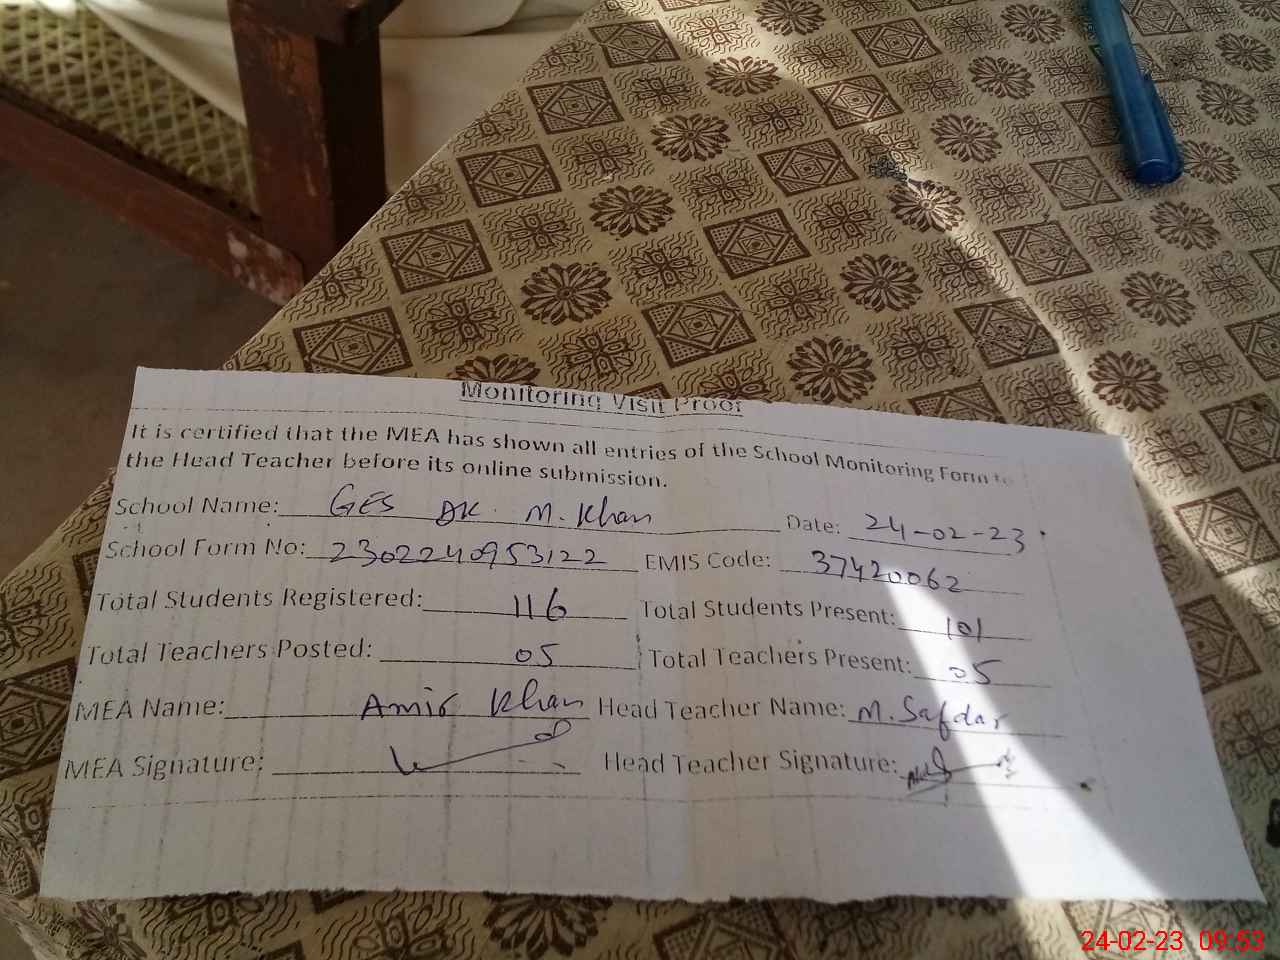 Monitoring Visit Proof
It is certified that the MEA has shown all entries of the School Monitoring Form to
the Head Teacher before its online submission.
School Name: GES DK. M. Khan Date: 24-02-23
School Form No: 2302240953122 EMIS Code: 37420062
Total Students Registered: 116 Total Students Present: 101
Total Teachers Posted: 05 Total Teachers Present: 05
MEA Name: Amir Khan Head Teacher Name: M. Safdar
MEA Signature: Head Teacher Signature:
24-02-23 09:53